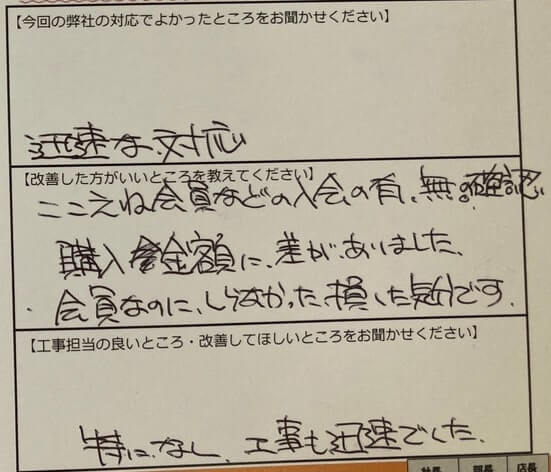 【今回の弊社の対応でよかったところをお聞かせください】
迅速な対応
【改善した方がいいところを教えてください】
ここえね会員などの入会の有、無の確認
購入金額に、差が、ありました、
会員なのに、しらなかった、損した気分です、
【工事担当の良いところ・改善してほしいところをお聞かせください】
特に、なし、工事も迅速でした、
社長 部長 店長